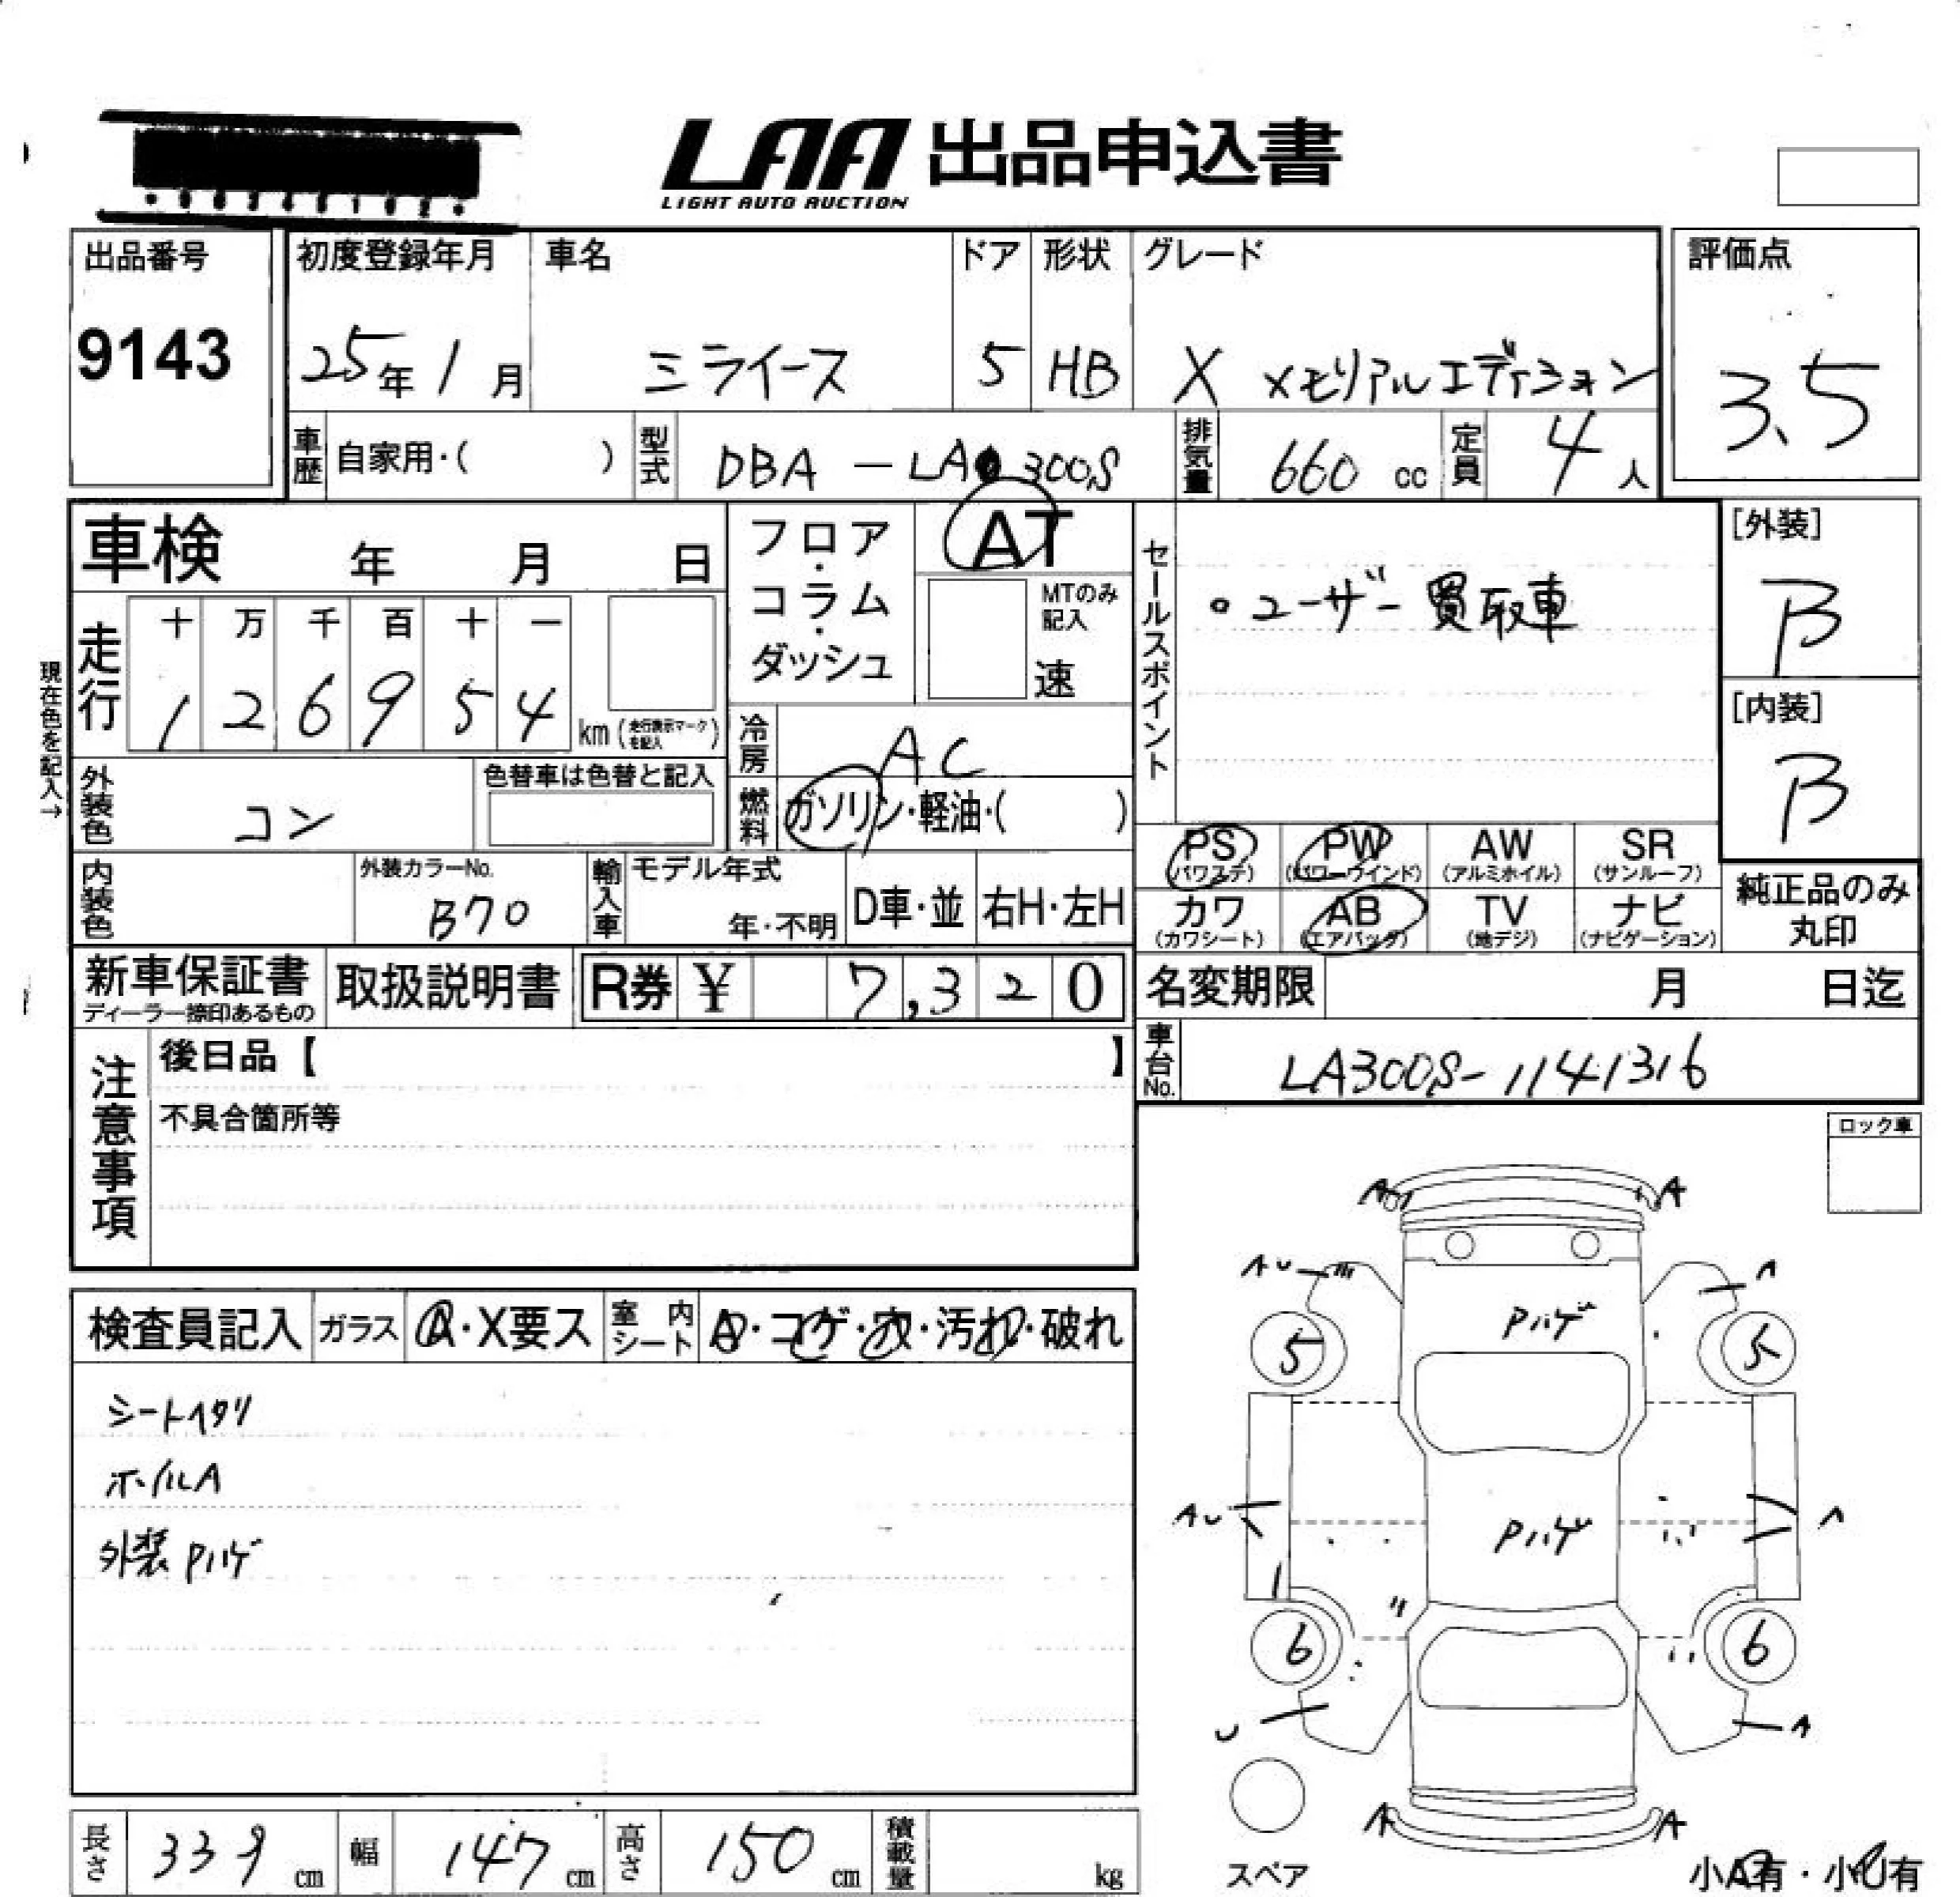 LAA 出品申込書
LIGHT AUTO AUCTION
出品番号 初度登録年月 車名 ドア 形状 グレード 評価点
9143 25年 1月 ミライース 5 HB X メモリアルエディション 3.5
車歴 自家用・( ) 型式 DBA-LA300S 排気量 660 cc 定員 4人
車検 年 月 日 フロア・コラム・ダッシュ AT セールスポイント [外装]
MTのみ記入 速 ・ユーザー買取車 B
走行 十 万 千 百 十 一
1 2 6 9 5 4 km (走行表示マークを記入) [内装]
現在色を記入→
冷房 AC B
外装色 コン 色替車は色替と記入 燃料 ガソリン・軽油・( )
PS (パワステ) PW (パワーウインド) AW (アルミホイル) SR (サンルーフ)
内装色 外装カラーNo. B70 輸入車 モデル年式 年・不明 D車・並 右H・左H
カワ (カワシート) AB (エアバッグ) TV (地デジ) ナビ (ナビゲーション) 純正品のみ丸印
新車保証書 ディーラー捺印あるもの 取扱説明書 R券 ¥ 7,320 名変期限 月 日迄
注意事項 後日品【 】 車台No. LA300S-1141316
不具合箇所等
ロック車
A A
AU A
検査員記入 ガラス A・X要ス 室内シート A・コゲ・穴・汚れ・破れ
Pハゲ
5 5
シートヘタリ
ホイルA
AU A
外装Pハゲ
Pハゲ
6 6
U A
A A
長さ 339 cm 幅 147 cm 高さ 150 cm 積載量 kg
スペア 小A有・小U有